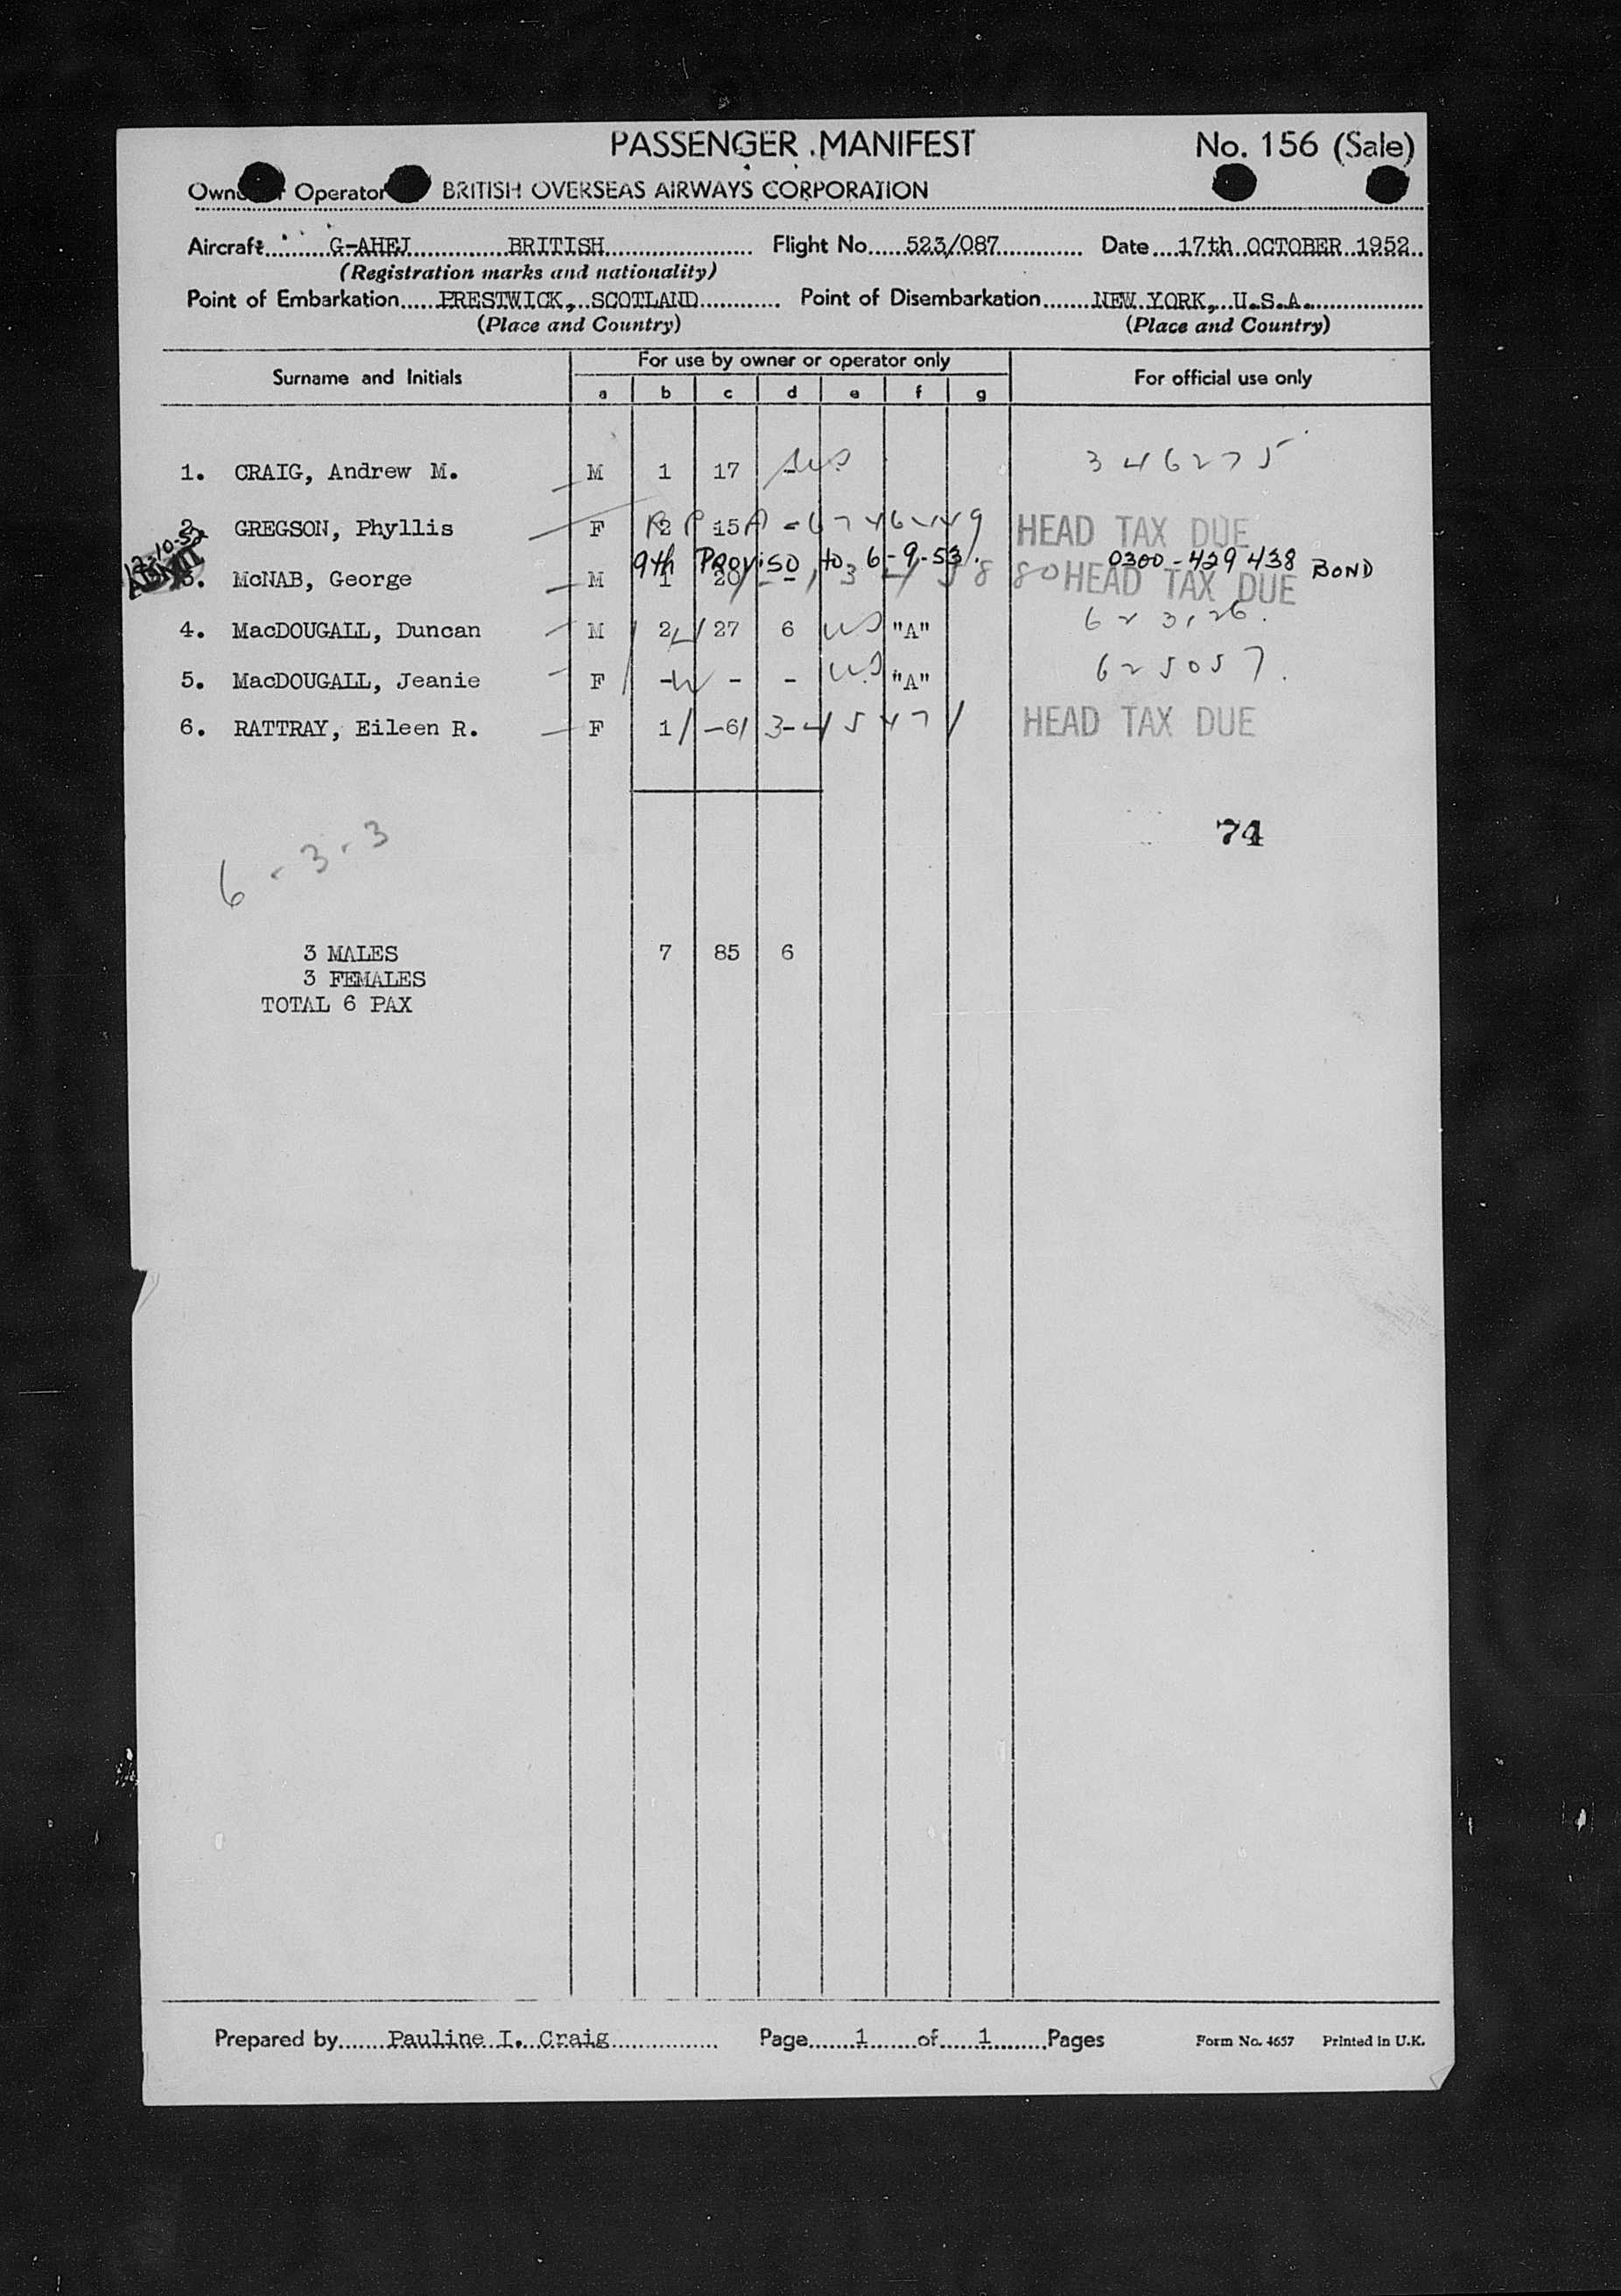 PASSENGER MANIFEST No. 156 (Sale)
Operator BRITISH OVERSEAS AIRWAYS CORPORATION
Aircraft G-AHEJ BRITISH Flight No. 523/087 Date 17th OCTOBER 1952
(Registration marks and nationality)
Point of Embarkation PRESTWICK, SCOTLAND Point of Disembarkation NEW YORK, U.S.A.
(Place and Country) (Place and Country)
Surname and Initials For use by owner or operator only For official use only
a b c d e f g
1. CRAIG, Andrew M. M 1 17 - US 346275
2. GREGSON, Phyllis F 2 15 - HEAD TAX DUE
12-10-52 9th Proviso to 6-9-53. 0300-429438 BOND
ADMIT 3. McNAB, George M 1 20 - HEAD TAX DUE
4. MacDOUGALL, Duncan M 2 27 6 US "A" 623126.
5. MacDOUGALL, Jeanie F - - - US "A" 625057.
6. RATTRAY, Eileen R. F 1 6 HEAD TAX DUE
74
6-3-3
3 MALES 7 85 6
3 FEMALES
TOTAL 6 PAX
Prepared by Pauline I. Craig Page 1 of 1 Pages Form No. 4657 Printed in U.K.